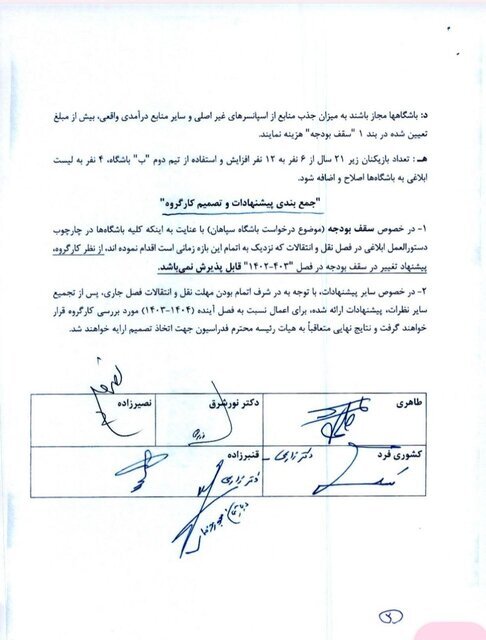 د: باشگاهها مجاز باشند به میزان جذب منابع از اسپانسرهای غیر اصلی و سایر منابع درآمدی واقعی، بیش از مبلغ
تعیین شده در بند ۱ "سقف بودجه" هزینه نمایند.
هـ : تعداد بازیکنان زیر ۲۱ سال از ۶ نفر به ۱۲ نفر افزایش و استفاده از تیم دوم "ب" باشگاه، ۴ نفر به لیست
ابلاغی به باشگاه‌ها اصلاح و اضافه شود.
"جمع بندی پیشنهادات و تصمیم کارگروه"
۱- در خصوص سقف بودجه (موضوع درخواست باشگاه سپاهان) با عنایت به اینکه کلیه باشگاه‌ها در چارچوب
دستورالعمل ابلاغی در فصل نقل و انتقالات که نزدیک به اتمام این بازه زمانی است اقدام نموده اند، از نظر کارگروه،
پیشنهاد تغییر در سقف بودجه در فصل "۴۰۳-۱۴۰۲" قابل پذیرش نمی‌باشد.
۲- در خصوص سایر پیشنهادات، با توجه به در شرف اتمام بودن مهلت نقل و انتقالات فصل جاری، پس از تجمیع
سایر نظرات، پیشنهادات ارائه شده، برای اعمال نسبت به فصل آینده (۱۴۰۴-۱۴۰۳) مورد بررسی کارگروه قرار
خواهند گرفت و نتایج نهایی متعاقباً به هیات رئیسه محترم فدراسیون جهت اتخاذ تصمیم ارایه خواهند شد.
طاهری
دکتر نورشرق
نصیرزاده
کشوری فرد
قنبرزاده
۲